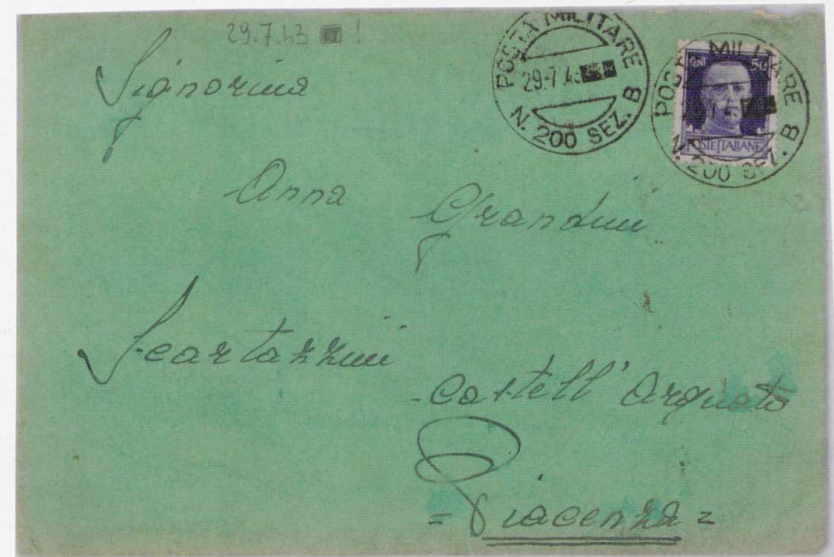 29.7.43 !
POSTA MILITARE
29.7.43
N. 200 SEZ. B
POSTA MILITARE
N. 200 SEZ. B
50
POSTE ITALIANE
Signorina
Anna Grandini
Scartazzini
Castell' Arquato
= Piacenza =